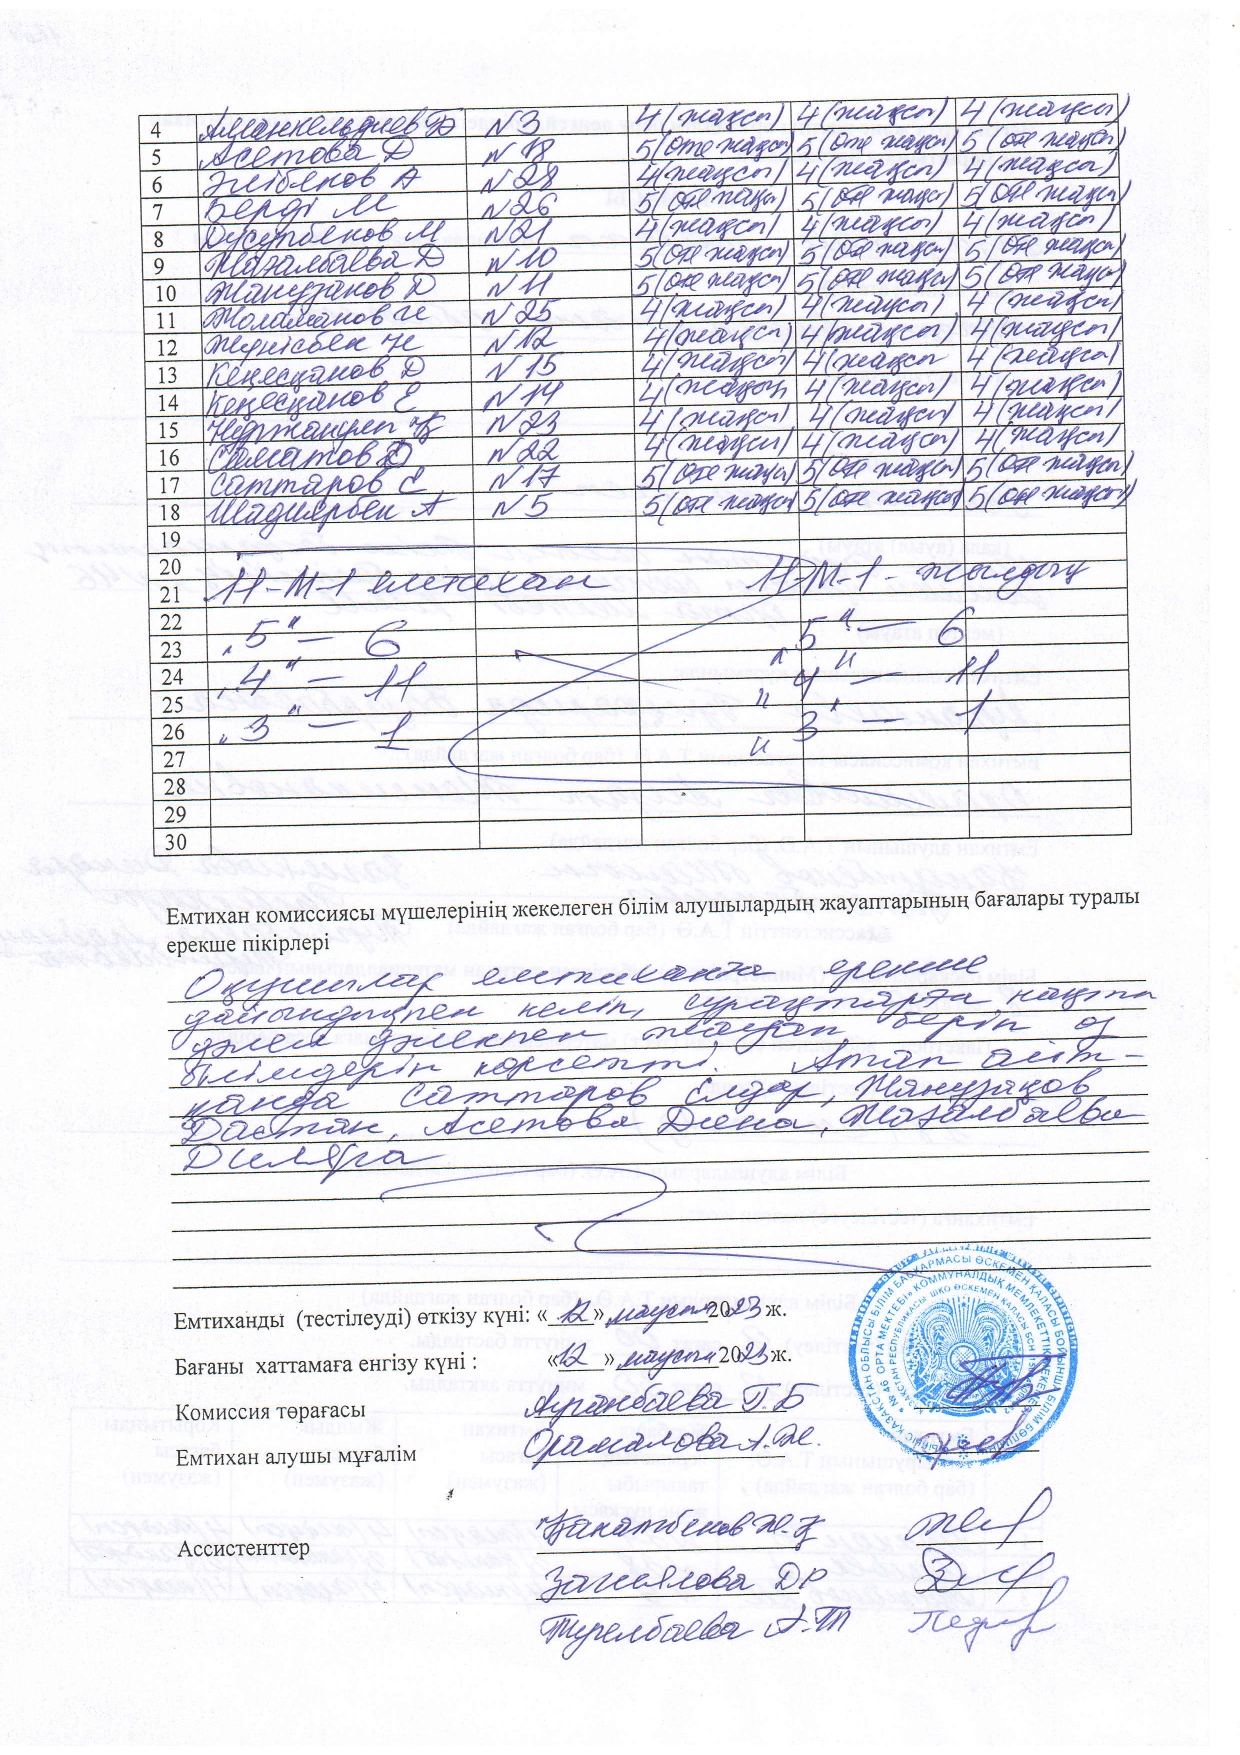 4 Аманкельдиев Б N 3 4 (жақсы) 4 (жақсы) 4 (жақсы)
5 Асетова Д N 18 5 (өте жақсы) 5 (өте жақсы) 5 (өте жақсы)
6 А N 28 4 (жақсы) 4 (жақсы) 4 (жақсы)
7 Берді М N 26 5 (өте жақсы) 5 (өте жақсы) 5 (өте жақсы)
8 Дүсүпбеков М N 21 4 (жақсы) 4 (жақсы) 4 (жақсы)
9 Жазалбаева Д N 10 5 (өте жақсы) 5 (өте жақсы) 5 (өте жақсы)
10 Жанузақов Д N 11 5 (өте жақсы) 5 (өте жақсы) 5 (өте жақсы)
11 Жоламанов N 25 4 (жақсы) 4 (жақсы) 4 (жақсы)
12 Жеңісбек N 12 4 (жақсы) 4 (жақсы) 4 (жақсы)
13 Кеңесханов Д N 15 4 (жақсы) 4 (жақсы 4 (жақсы)
14 Кеңесханов Е N 14 4 (жақсы 4 (жақсы) 4 (жақсы)
15 N 23 4 (жақсы) 4 (жақсы) 4 (жақсы)
16 Саматов D N 22 4 (жақсы) 4 (жақсы) 4 (жақсы)
17 Саттаров Е N 17 5 (өте жақсы) 5 (өте жақсы) 5 (өте жақсы)
18 Шадиярбек А N 5 5 (өте жақсы) 5 (өте жақсы) 5 (өте жақсы)
19
20
21 11-М-1 емтихан 11-М-1 - жылдық
22
23 „5" — 6 „5" — 6
24 „4" — 11 „4" — 11
25
26 „3" — 1 „3" — 1
27
28
29
30
Емтихан комиссиясы мүшелерінің жекелеген білім алушылардың жауаптарының бағалары туралы
ерекше пікірлері
Оқушылар емтиханға ерекше
дайындықпен келіп, сұрақтарға нақты
дәлел дәлекпен жауап беріп өз
білімдерін көрсетті. Атап айт-
қанда Саттаров Елдар, Жанузақов
Дастан, Асетова Диана, Жазалбаева
Диляра
Емтиханды (тестілеуді) өткізу күні: « 12 » маусым 2023 ж.
Бағаны хаттамаға енгізу күні : « 12 » маусым 2023 ж.
Комиссия төрағасы Ауганбаева Г.Б
Емтихан алушы мұғалім Орамалова А.Ж.
Ассистенттер Қанатбеков Ж.Қ
Д Р
Турелбаева А.Т